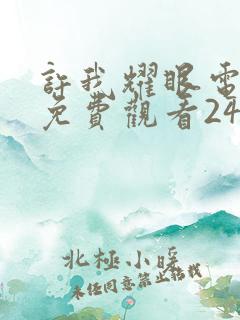 許我耀眼電
免費觀看24
北極小暖
未經同意禁止轉載